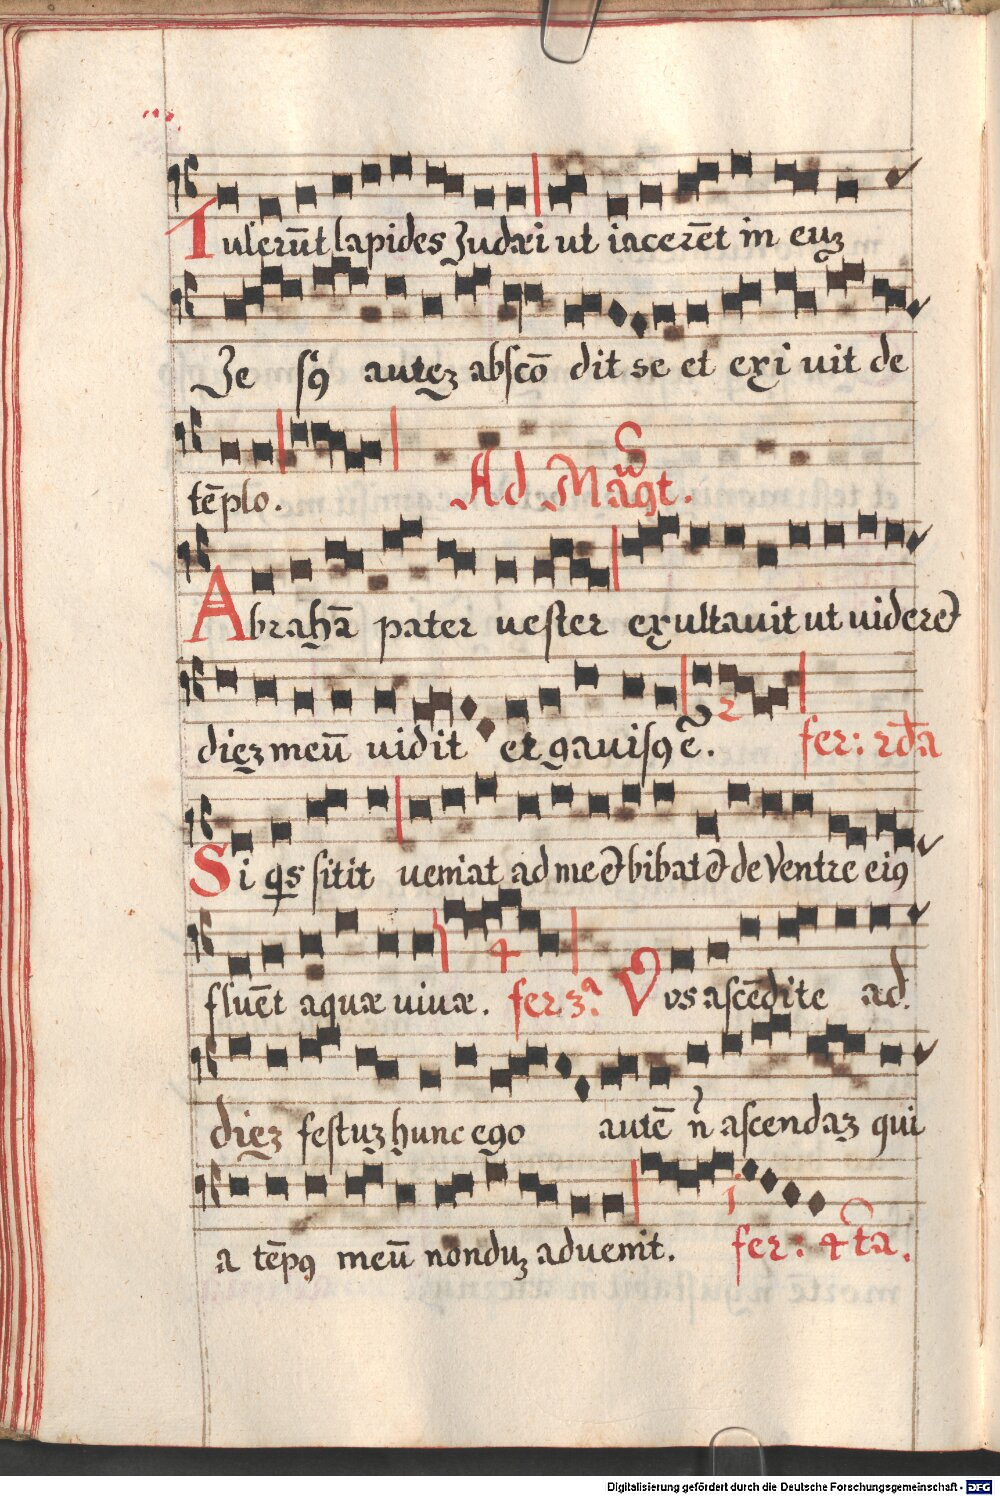 Tulerūt lapides Judæi ut iacerēt in euʒ
Je sꝰ auteʒ abscō dit se et exi uit de
tēplo. Ad Magt.
Abrahā pater uester exultauit ut uideret
dieʒ meū uidit et gauisꝯ ē. 2 fer: 2da
Si qs sitit ueniat ad me et bibat et de Ventre eiꝯ
fluēt aquæ uiuæ. 4 fer 3a. Vos ascēdite ad
dieʒ festuʒ hunc ego autē n̄ ascendaʒ qui
a tēpꝯ meū nonduʒ aduenit. i fer. 4ta.
Digitalisierung gefördert durch die Deutsche Forschungsgemeinschaft - DFG